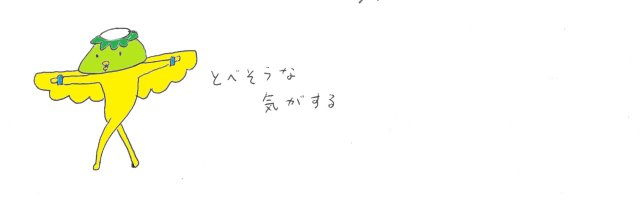 とべそうな
気がする